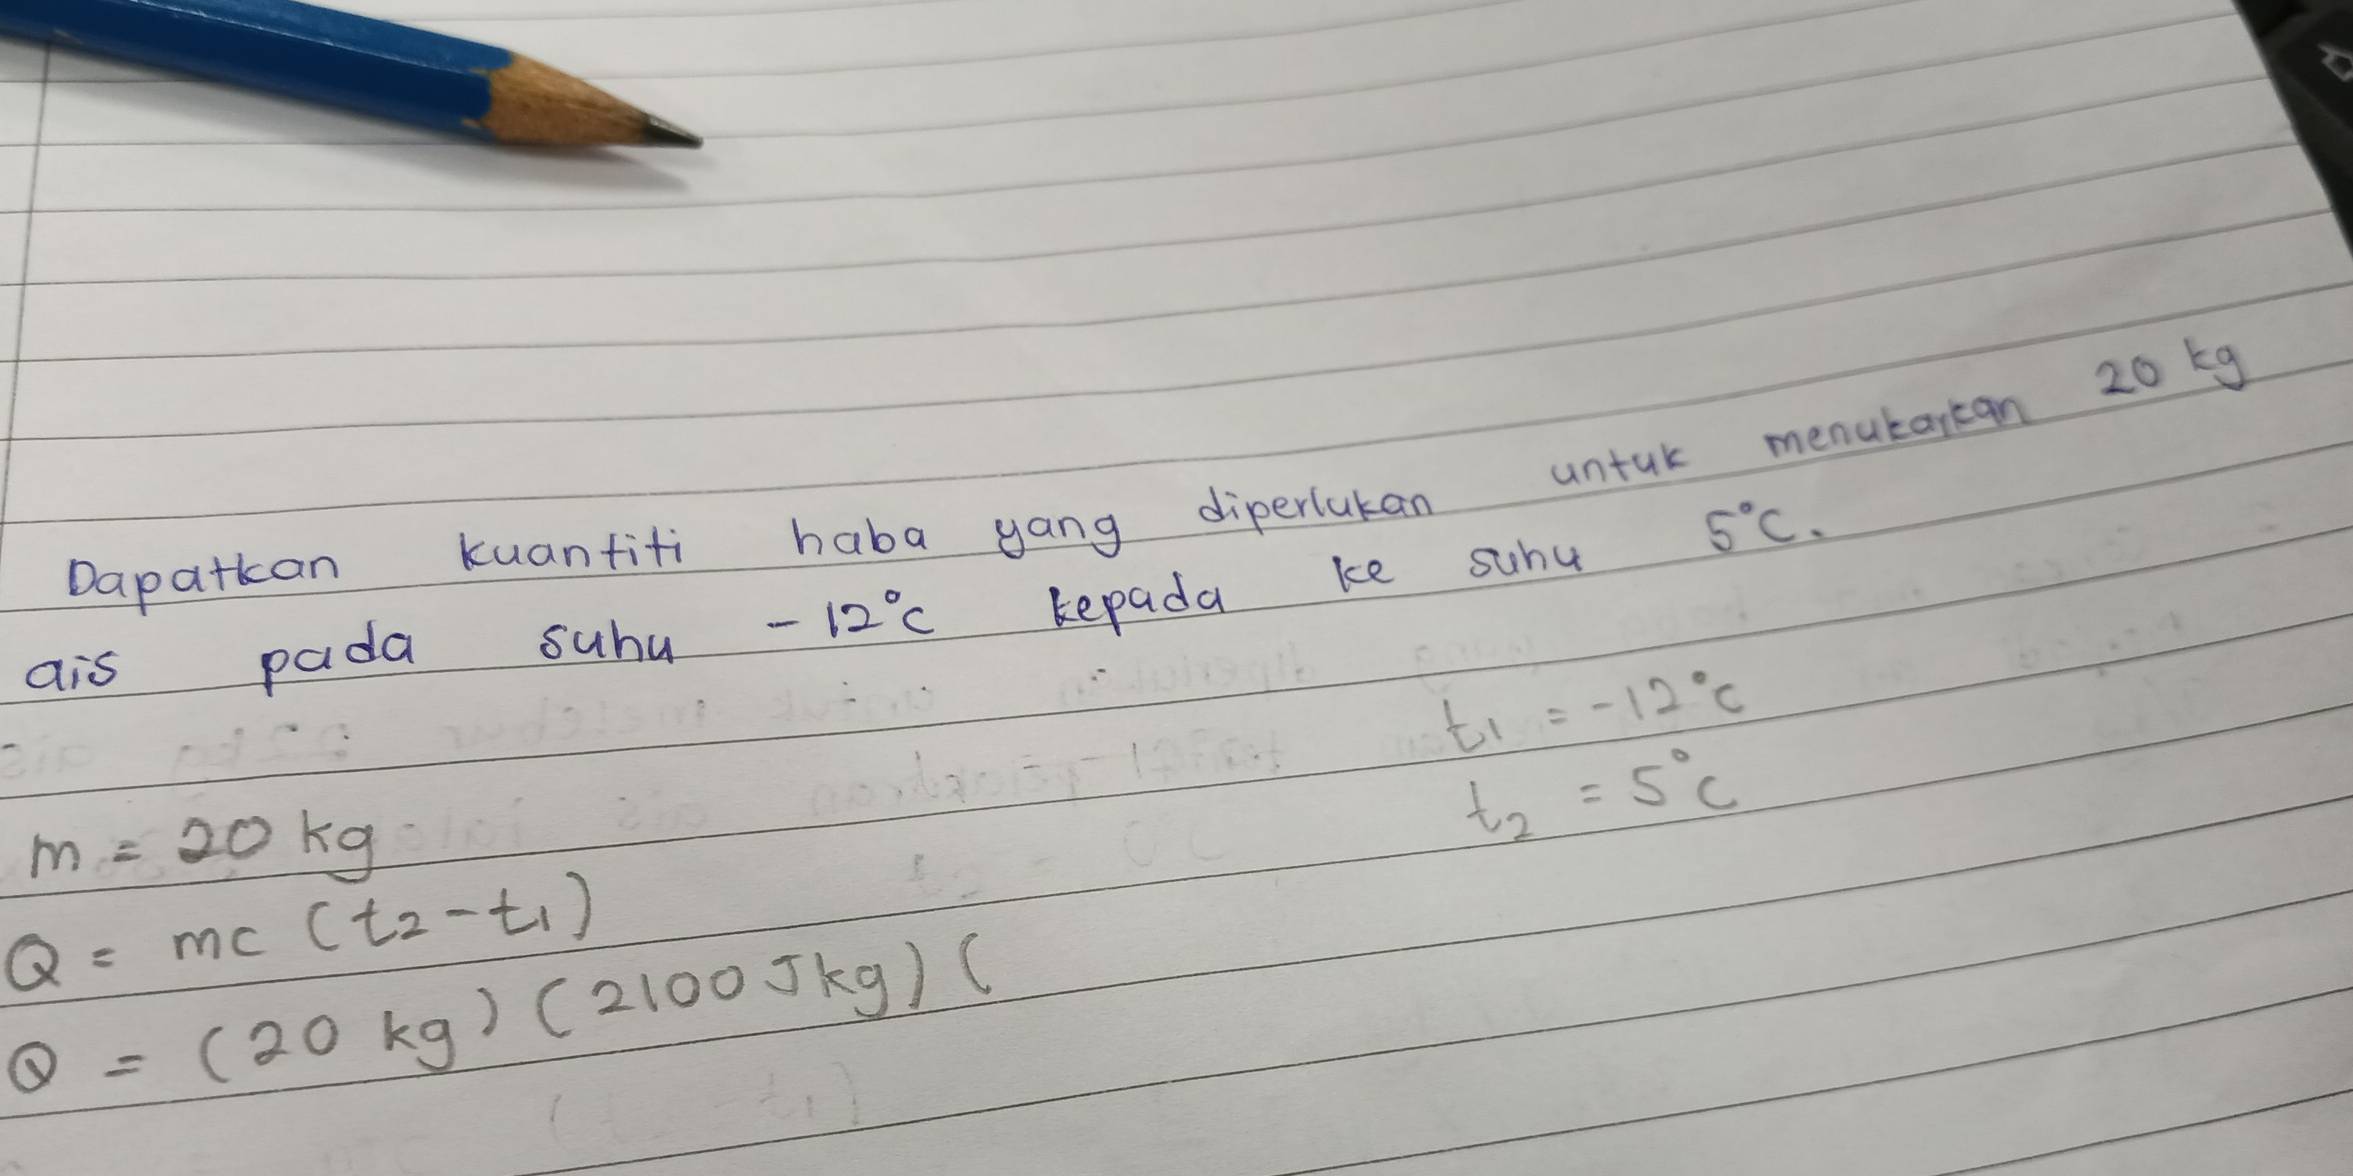 Dapatkan kuantiti haba yang diperlukan untuk menukarkan 20 kg
ais pada suhu -12°C kepada ke suhu 5°C.
t₁ = -12°C
t₂ = 5°C
m = 20 kg
Q = mc (t₂-t₁)
Q = (20 kg) (2100 Jkg) (